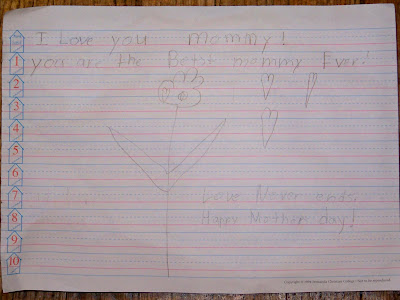 I Love you mommy!
you are the Betst mommy Ever!
1
2
3
4
5
6
7
Love Never ends.
8
Happy Mother day!
9
10